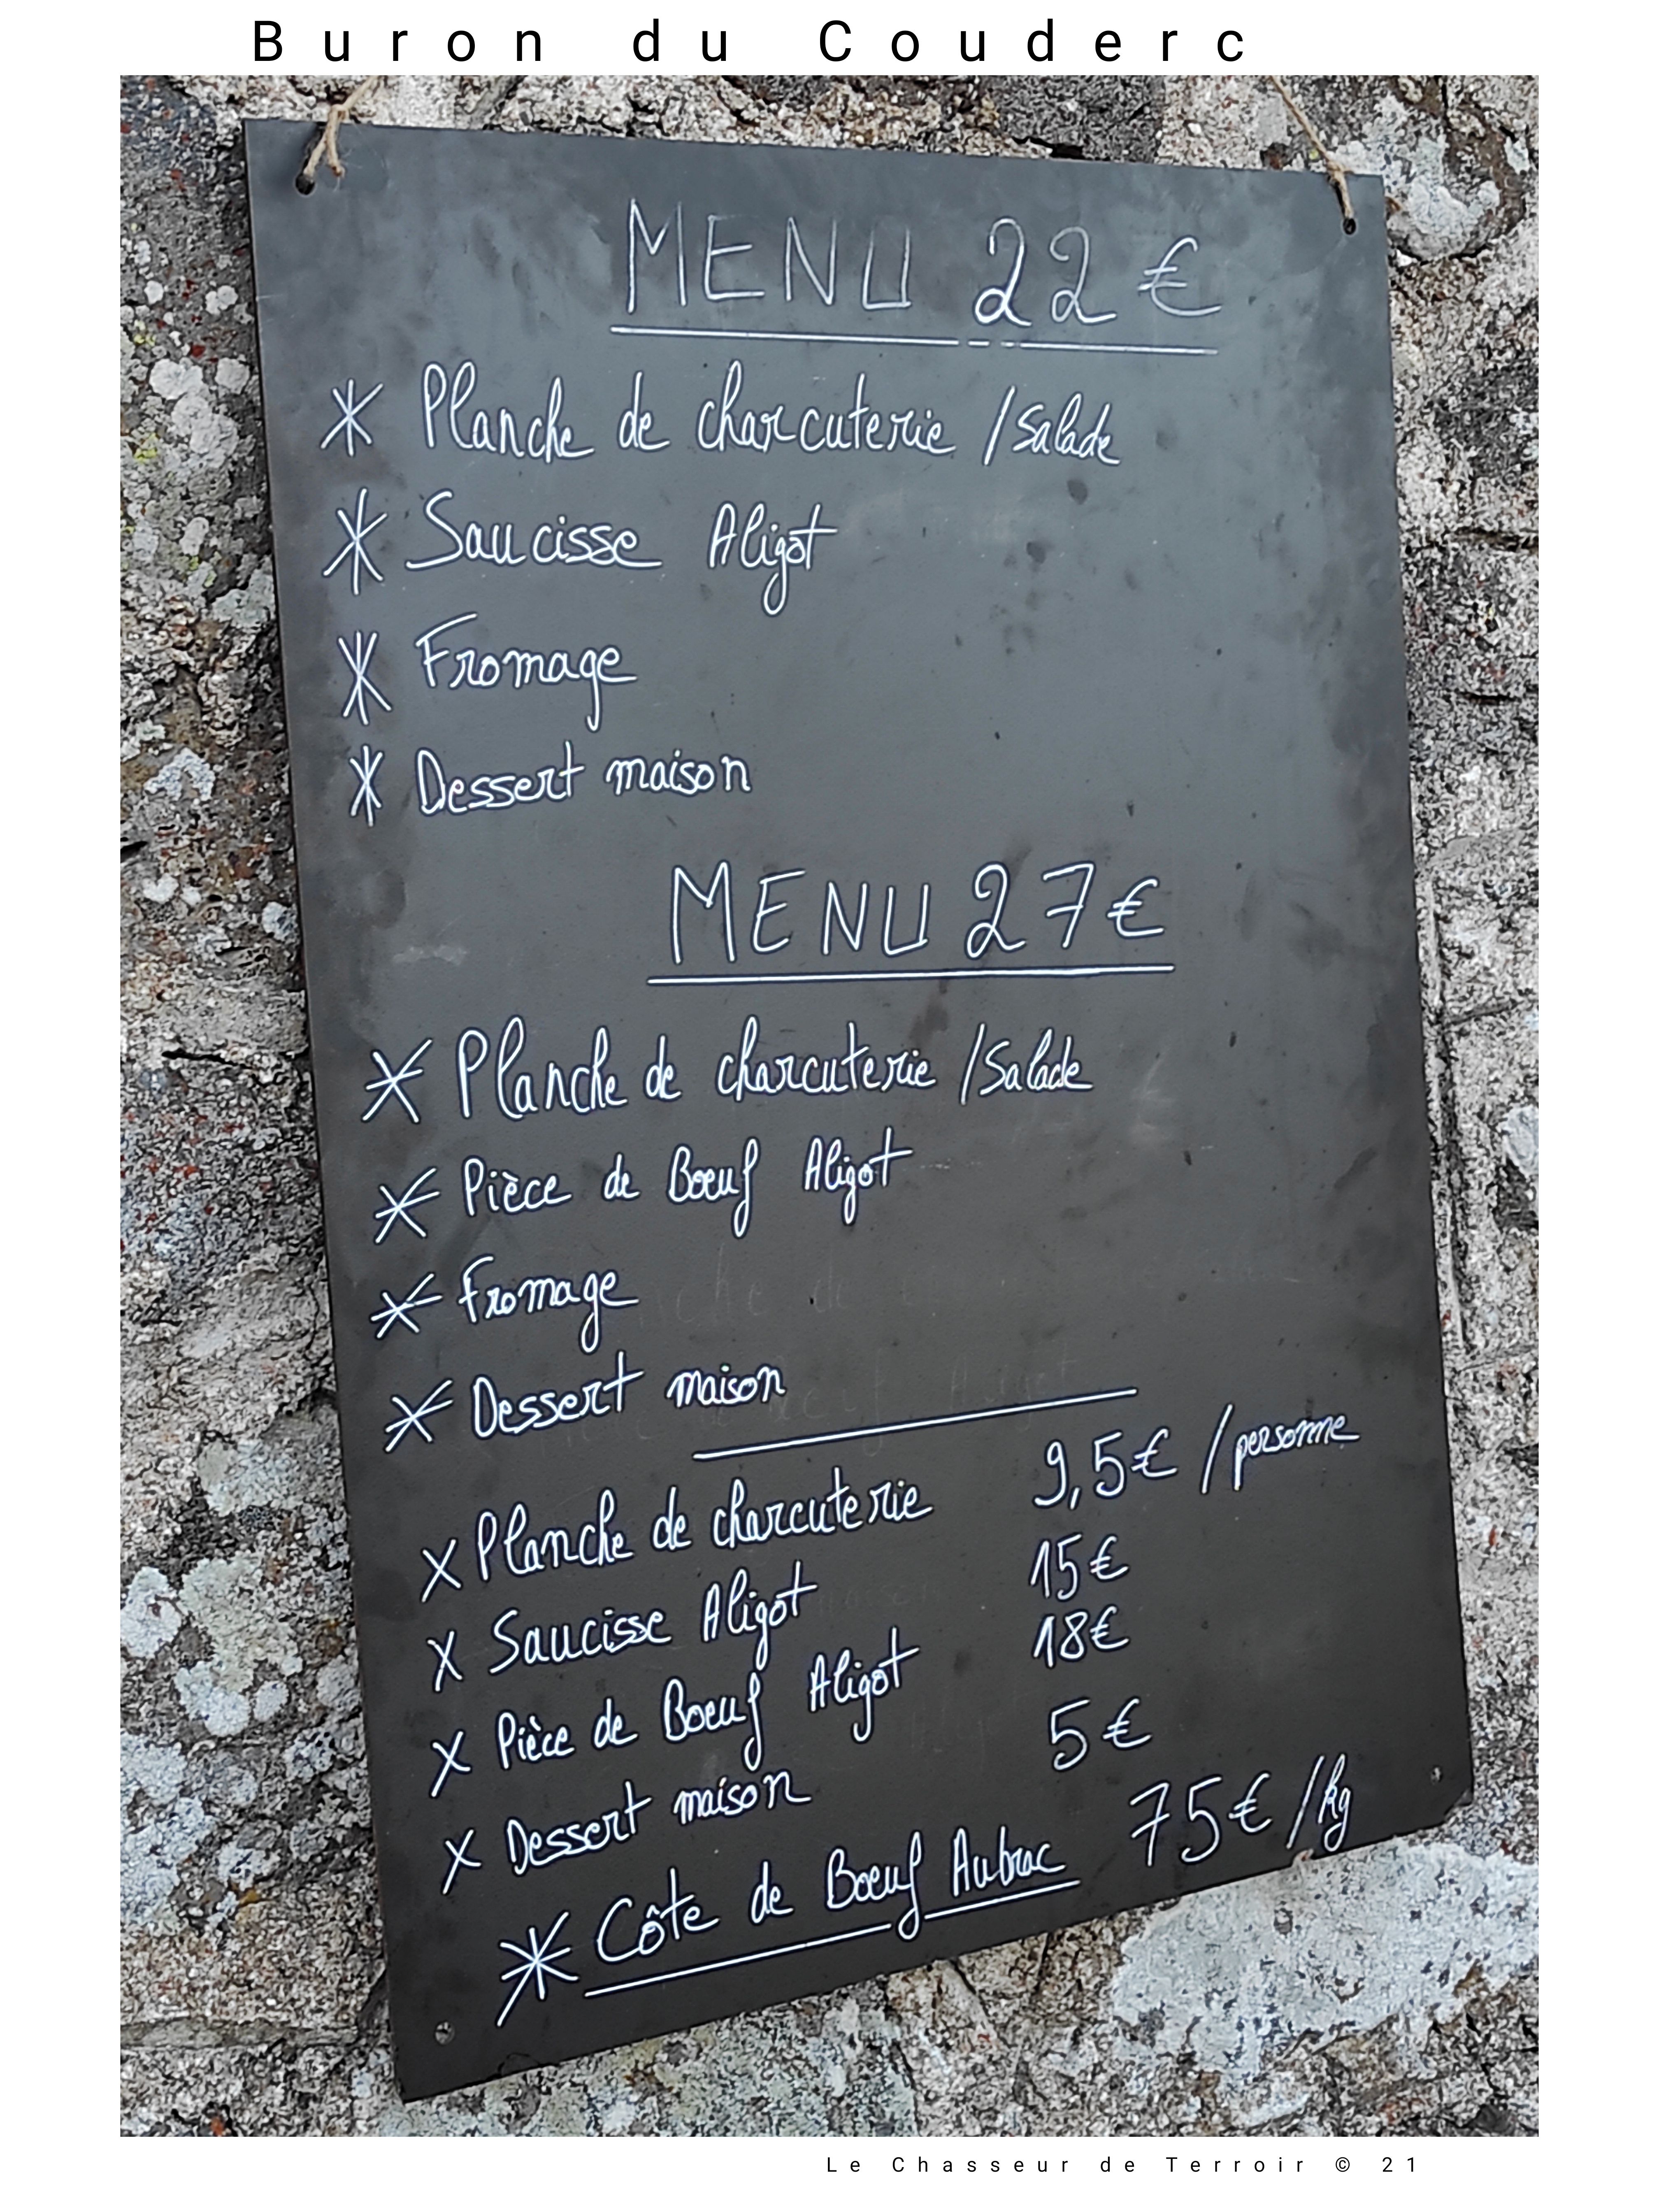 Buron du Couderc
MENU 22€
Planche de charcuterie /Salade
Saucisse Aligot
Fromage
Dessert maison
MENU 27€
Planche de charcuterie /Salade
Pièce de Boeuf Aligot
Fromage
Dessert maison
Planche de charcuterie 9,5€ /personne
Saucisse Aligot 15€
Pièce de Boeuf Aligot 18€
Dessert maison 5€
Côte de Boeuf Aubrac 75€ /kg
Le Chasseur de Terroir © 21